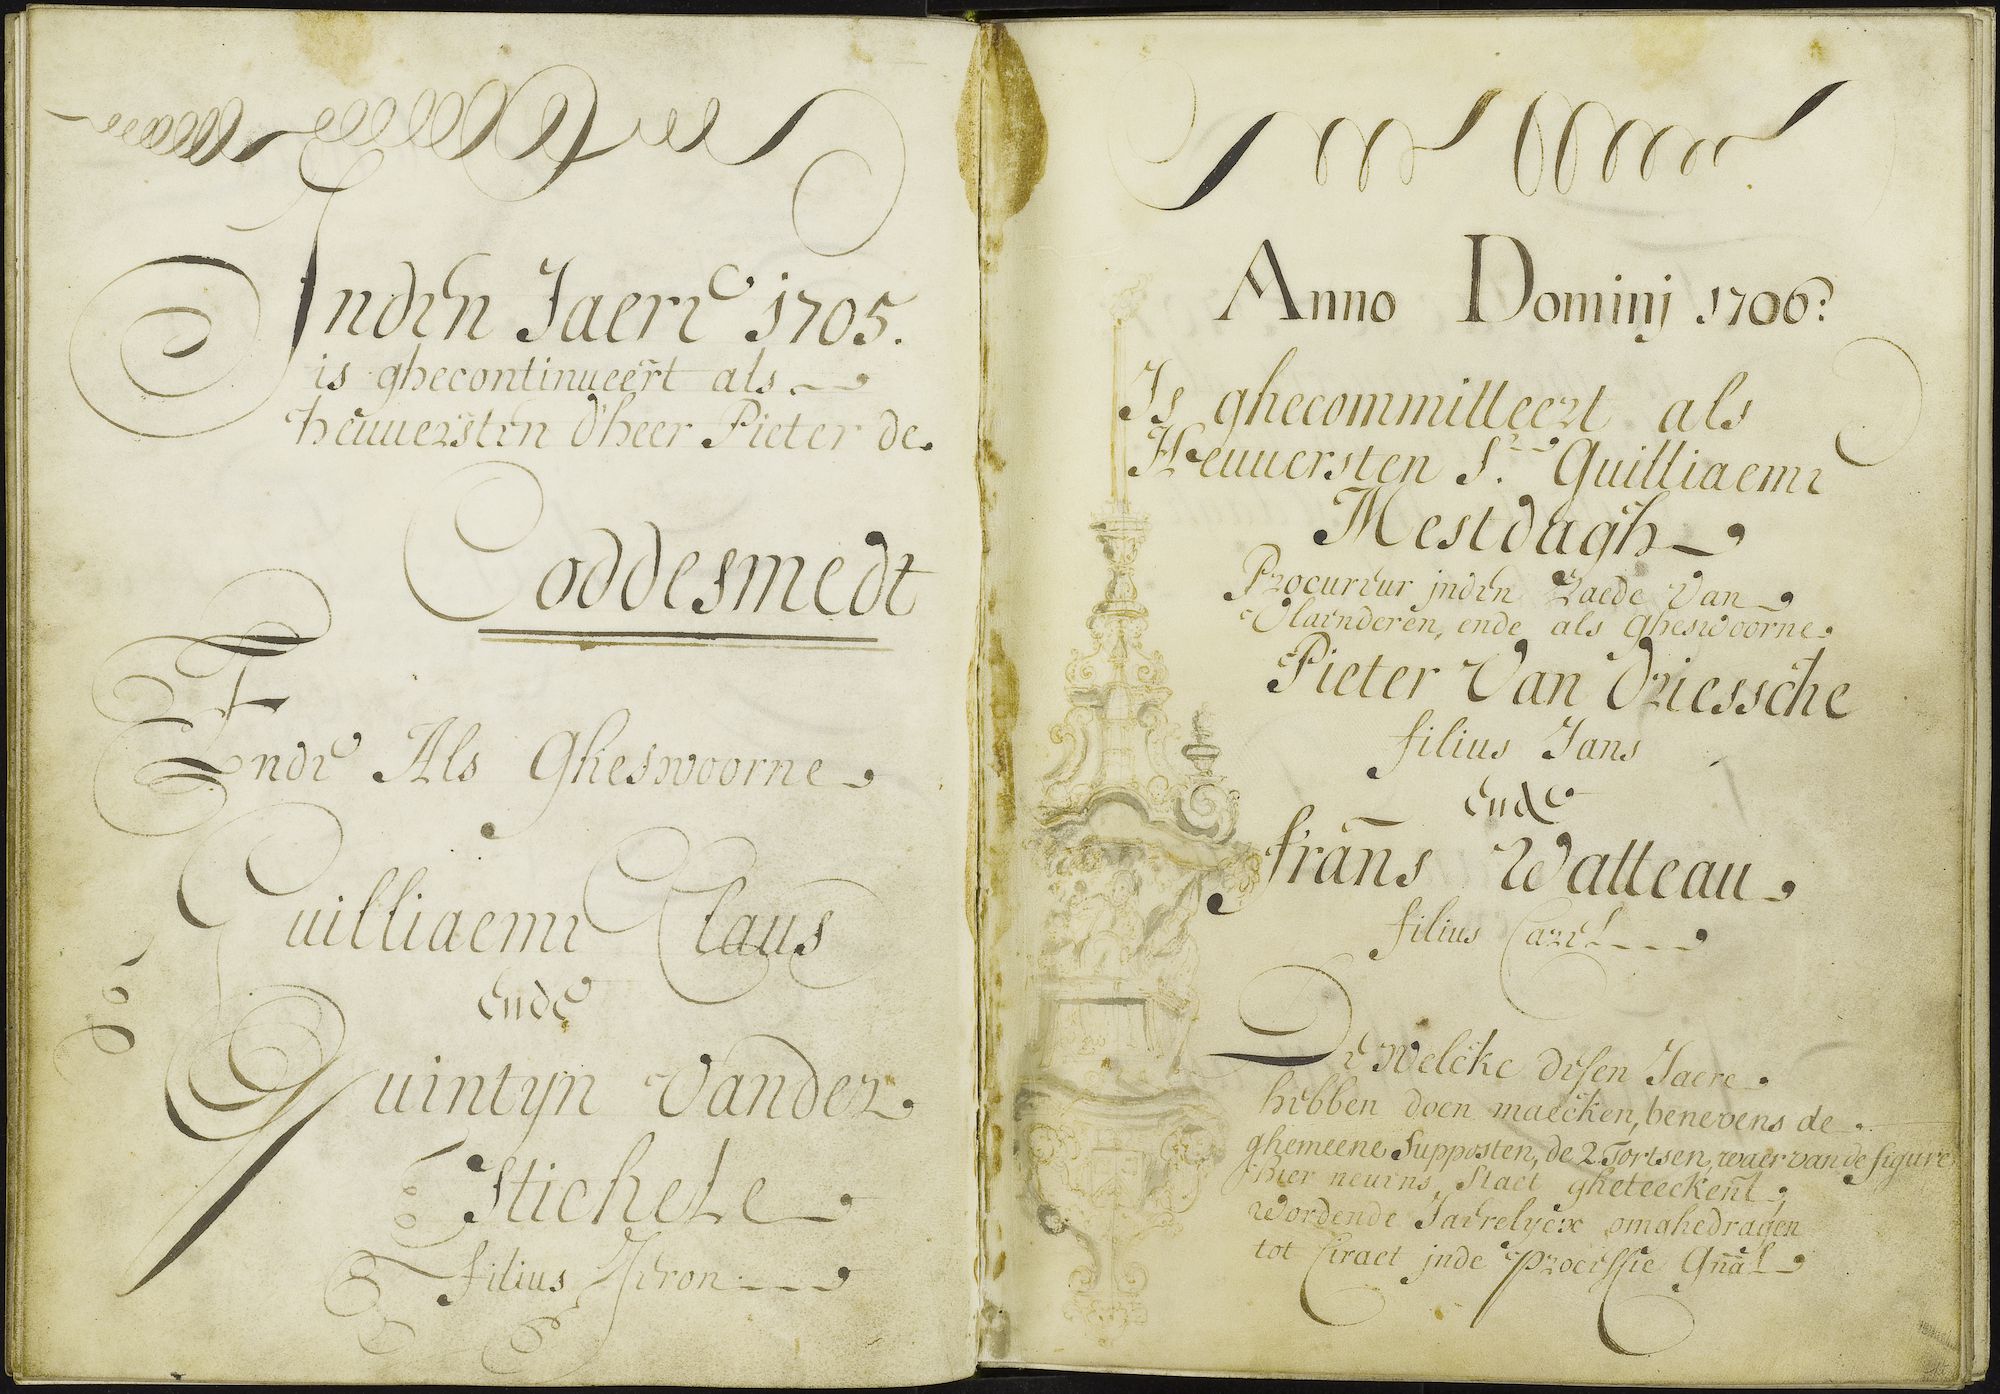 Inden Jaere 1705.
is ghecontinueert als
heuuersten d'heer Pieter de
Coddesmedt
Ende Als Gheswoorne
Guilliaeme Claus
ende
Quintyn Vander
Stichele
filius Jeron
Anno Dominj 1706:
Is ghecommitteert als
Heuuersten Sr. Guilliaeme
Mestdagh
Procureur jnden Raede Van
Vlaenderen, ende als Gheswoorne
Pieter Van Driessche
filius Jans
ende
frans Watteau
filius Carel
De welcke desen Jaere
hebben doen maecken, benevens de
ghemeene Supposten, de 2 Tortsen, waer van de figure
hier nevens Staet gheteeckent
Wordende Jaerelycx omghedragen
tot Ciraet jnde Processie Gnãl